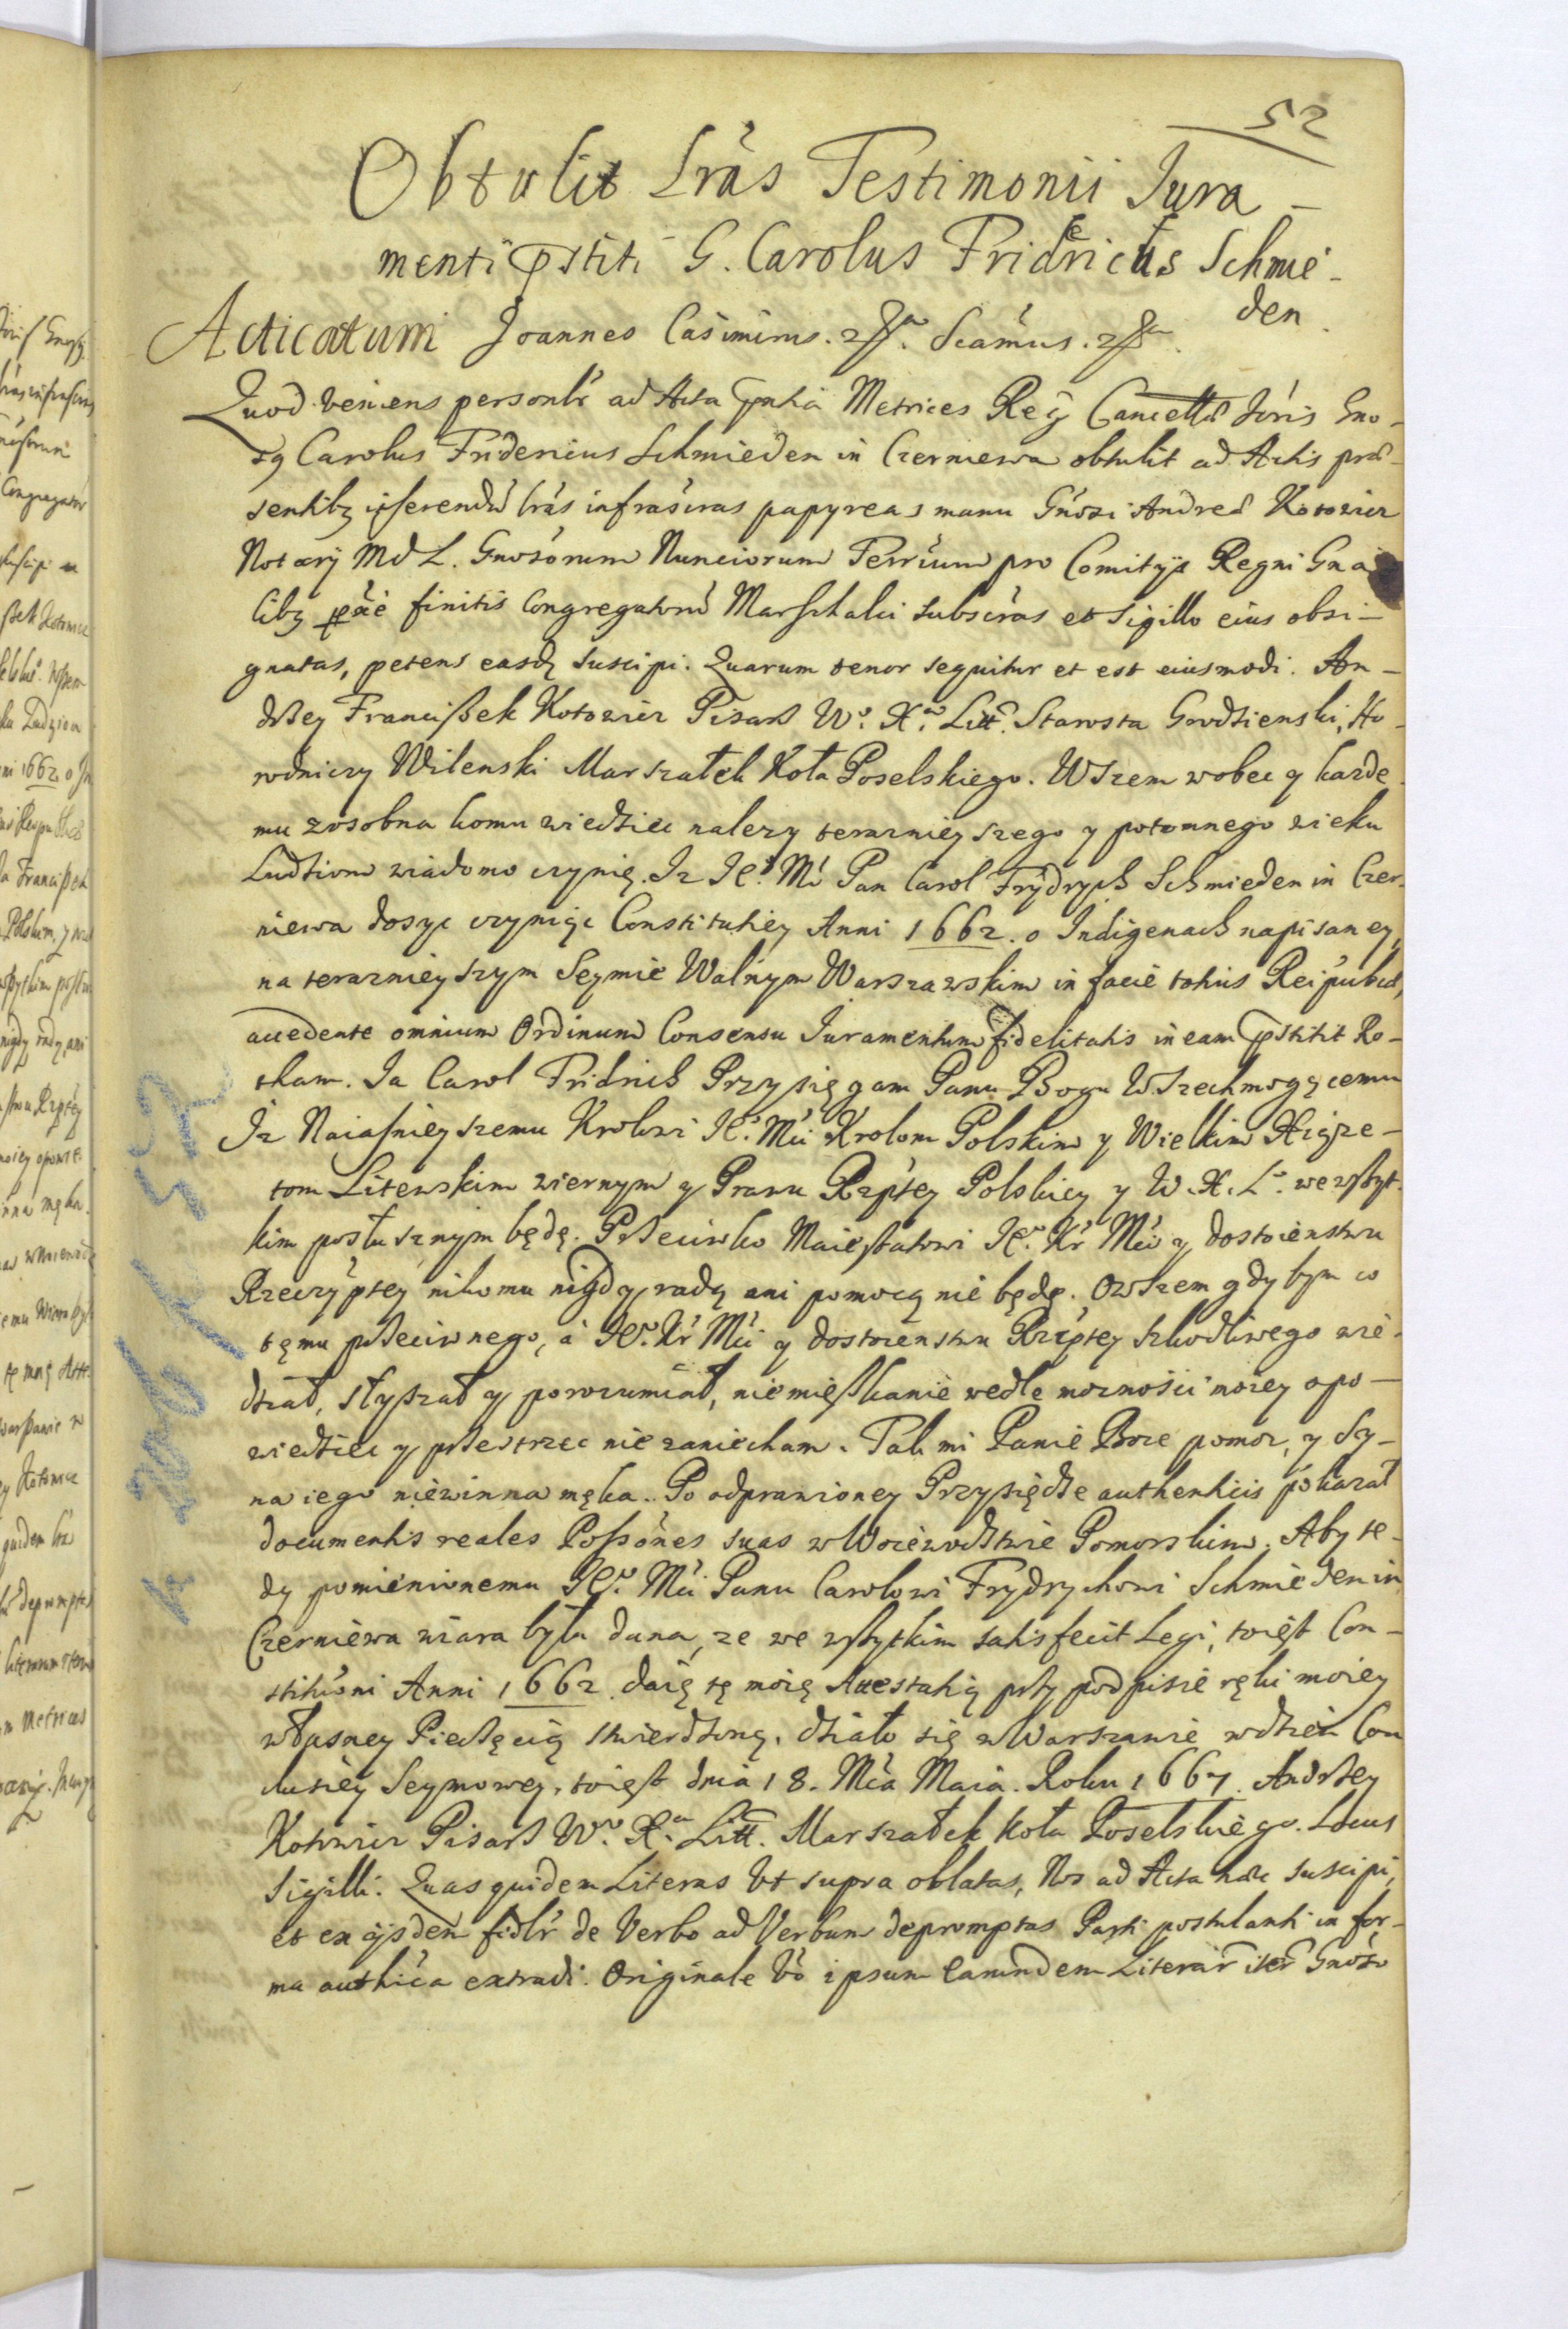 52
Obtulit Lrãs Testimonii Jura-
menti pstiti G. Carolus Fridericus Schmie-
den
Acticatum Joannes Casimirus. Sciamus.
Quod veniens personlr ad Acta pntia Metrices Regẽ Cancellã Joris Gno-
sq Carolus Fridericus Schmieden in Czerniewa obtulit ad Actis præ-
sentibz inserendũ lrás infrascras papyreas manu Gnosi Andreã Kotowicz
Notarij MdL. Gnosorum Nunciorum Terrium pro Comitijs Regni Gna
libz pxiẽ finitis Congregatorũ Marschalci subscras et sigillo eius obsi-
gnatas, petens easdẽ suscipi. Quarum tenor sequitur et est eiusmodi. An-
drzey Franciszek Kotowicz Pisarz Wo. Xa. Litt. Starosta Grodzienski, Ho-
rodniczy Wilenski Marszałek Koła Poselskiego. Wszem wobec y kazde-
mu zosobna komu wiedziec nalezy terazniey szego y potomnego wieku
Ludziom wiadomo czynię. Iz Ie. Mć Pan Carol Frydrych Schmieden in Czer-
niewa dosyc czyniąc Constitutiey Anni 1662. o Indigenach napisaney,
na terazniey szym Seymie Walnym Warszawskim in facie totius Reipubcæ,
accedente omnium Ordinum Consensu Juramentum fidelitatis in eam pstitit Ro-
tham. Ja Carol Fridrich Przysięgam Panu Bogu Wszechmogącemu
Iz Naiasniey szemu Krolowi Ie. Mći Krolom Polskim y Wielkim Xiąze-
tom Litewskim wiernym y Prawu Rzptey Polskiey y W. X. L. we wszyt-
kim posłusznym będę. Przeciwko Maiestatowi Ie. Kr Mći y dostoienstwu
Rzeczyptey nikomu nigdy radą ani pomocą nie będę. Owszem gdy bym co
temu przeciwnego, a Ie. Kr Mći y dostoienstwu Rzeptey szkodliwego wie-
dział, słyszał y porozumiał, niemieszkanie wedle mozności moiey opo-
wiedziec y przestrzec nie zaniecham. Tak mi Panie Boze pomoz, y Sy-
na iego niewinna męka. Po odprawioney Przysiędze authenticis pokazał
documentis reales Possones suas w Woiewodztwie Pomorskim. Aby te-
dy pomienionemu Ie. Mći Panu Carolowi Frydrychowi Schmieden in
Czerniewa wiara była dana, ze we wszytkim satisfecit Legi, toiest Con-
stitutioni Anni 1662 daię tę moię Attestatią przy podpisie ręki moiey
własney Pieczęcią stwierdzoną. działo się w Warszawie w dzień Con
clusiey Seymowey, toiest dnia 18. Mca Maia. Roku 1667. Andrzey
Kotowicz Pisarz Wo. Xa. Litt. Marszałek koła Poselskiego. Locus
Sigilli. Quas quidem Literas Ut supra oblatas, Nos ad Acta hæc suscipi,
et ex ijsdem fidlr de Verbo ad Verbum depromptas Parti postulanti in for-
ma authica extradi. Originale Vo ipsum earundem Literar iter Gnoso